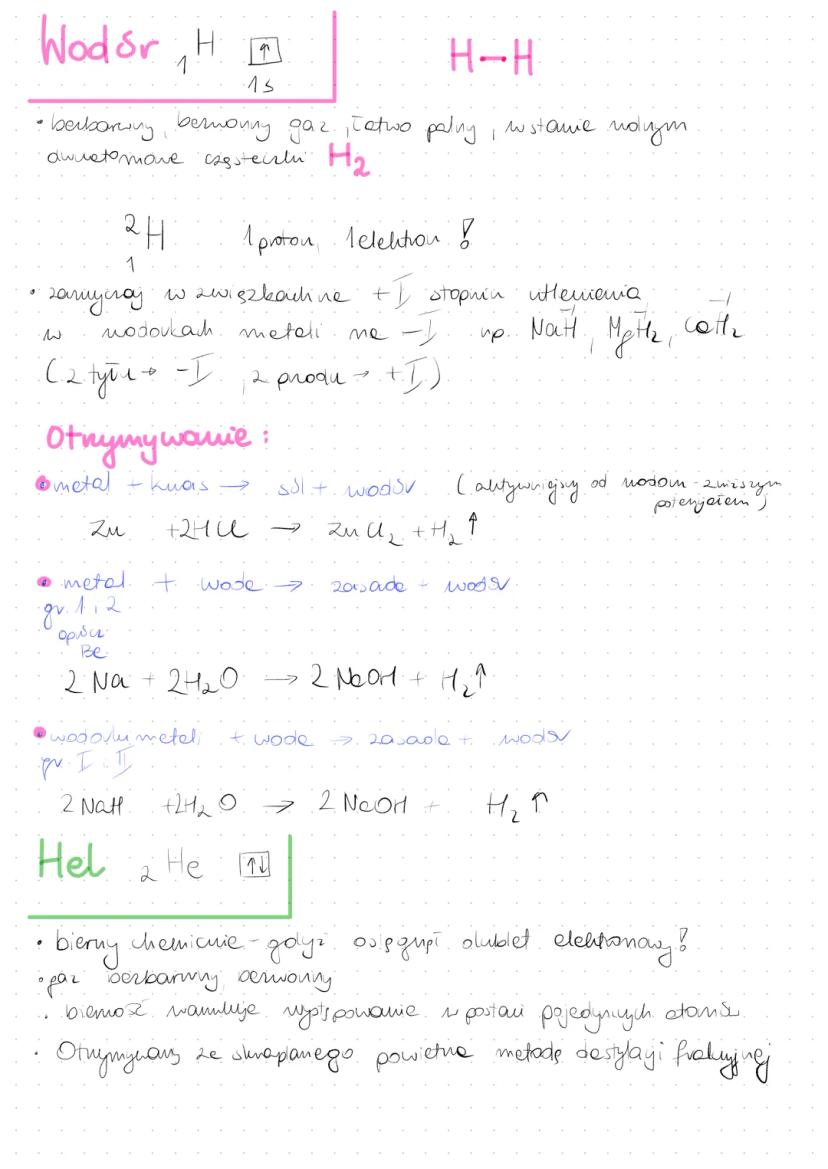 Wodór ₁H ↑ H–H
1s
• bezbarwny, bezwonny gaz, łatwo palny, w stanie wolnym
dwuatomowe cząsteczki H₂
²₁H 1 proton, 1 elektron!
• zazwyczaj w związkach na +I stopniu utlenienia
w wodorkach metali na -I np. NaH, MgH₂, CaH₂
(z tyłu → -I, z przodu → +I)
Otrzymywanie:
• metal + kwas → sól + wodór (aktywniejszy od wodoru - z niższym
potencjałem)
Zn + 2HCl → ZnCl₂ + H₂↑
• metal + woda → zasada + wodór
gr. 1 i 2
oprócz
Be
2 Na + 2H₂O → 2 NaOH + H₂↑
• wodorki metali + woda → zasada + wodór
gr. I i II
2 NaH + 2H₂O → 2 NaOH + H₂↑
Hel ₂He ↑↓
• bierny chemicznie - gdyż osiągnął dublet elektronowy!
• gaz bezbarwny, bezwonny
• bierność warunkuje występowanie w postaci pojedynczych atomów
• Otrzymywany ze skroplonego powietrza metodą destylacji frakcyjnej